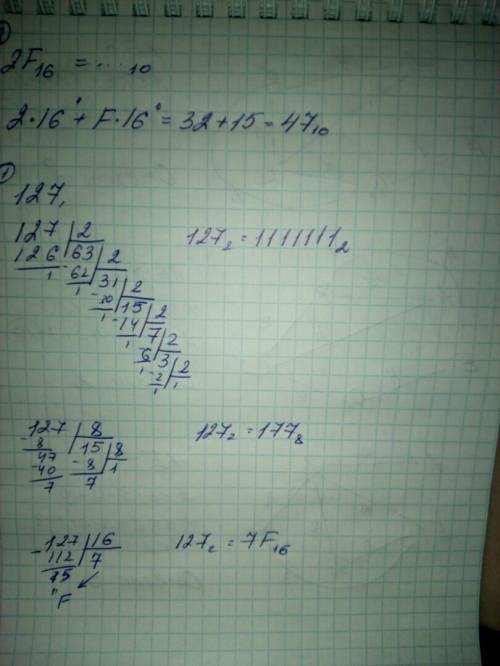 ①
2F₁₆ = ... ₁₀
2·16¹ + F·16⁰ = 32 + 15 = 47₁₀
①
127,
127 | 2
126 63 | 2
1 62 31 | 2
1 30 15 | 2
1 14 7 | 2
1 6 3 | 2
1 2 1
1
127₂ = 1111111₂
127 | 8
8 15 | 8
47 8 1
40 7
7
127₂ = 177₈
127 | 16
112 7
15
"
F
127₂ = 7F₁₆